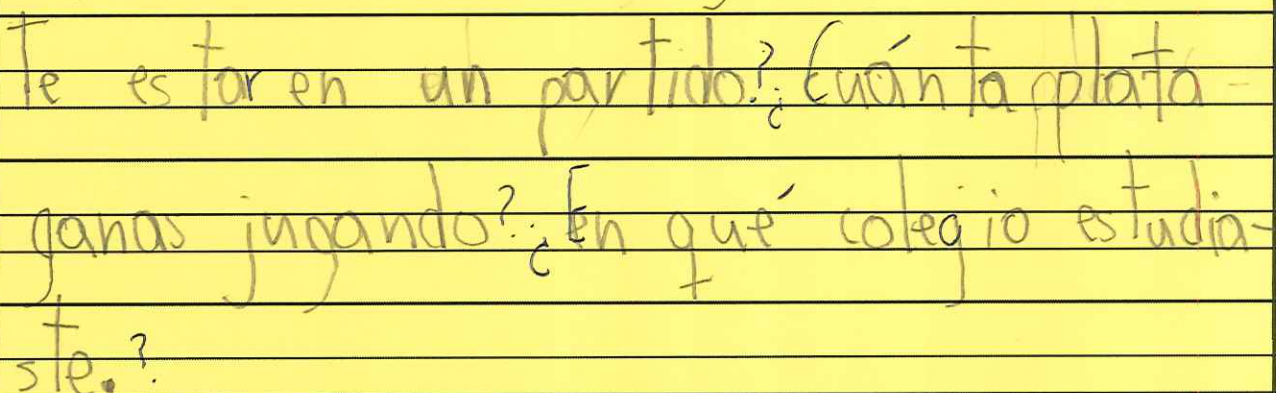 te estar en un partido? ¿Cuánta plata
ganas jugando? ¿En qué colegio estudia-
ste.?